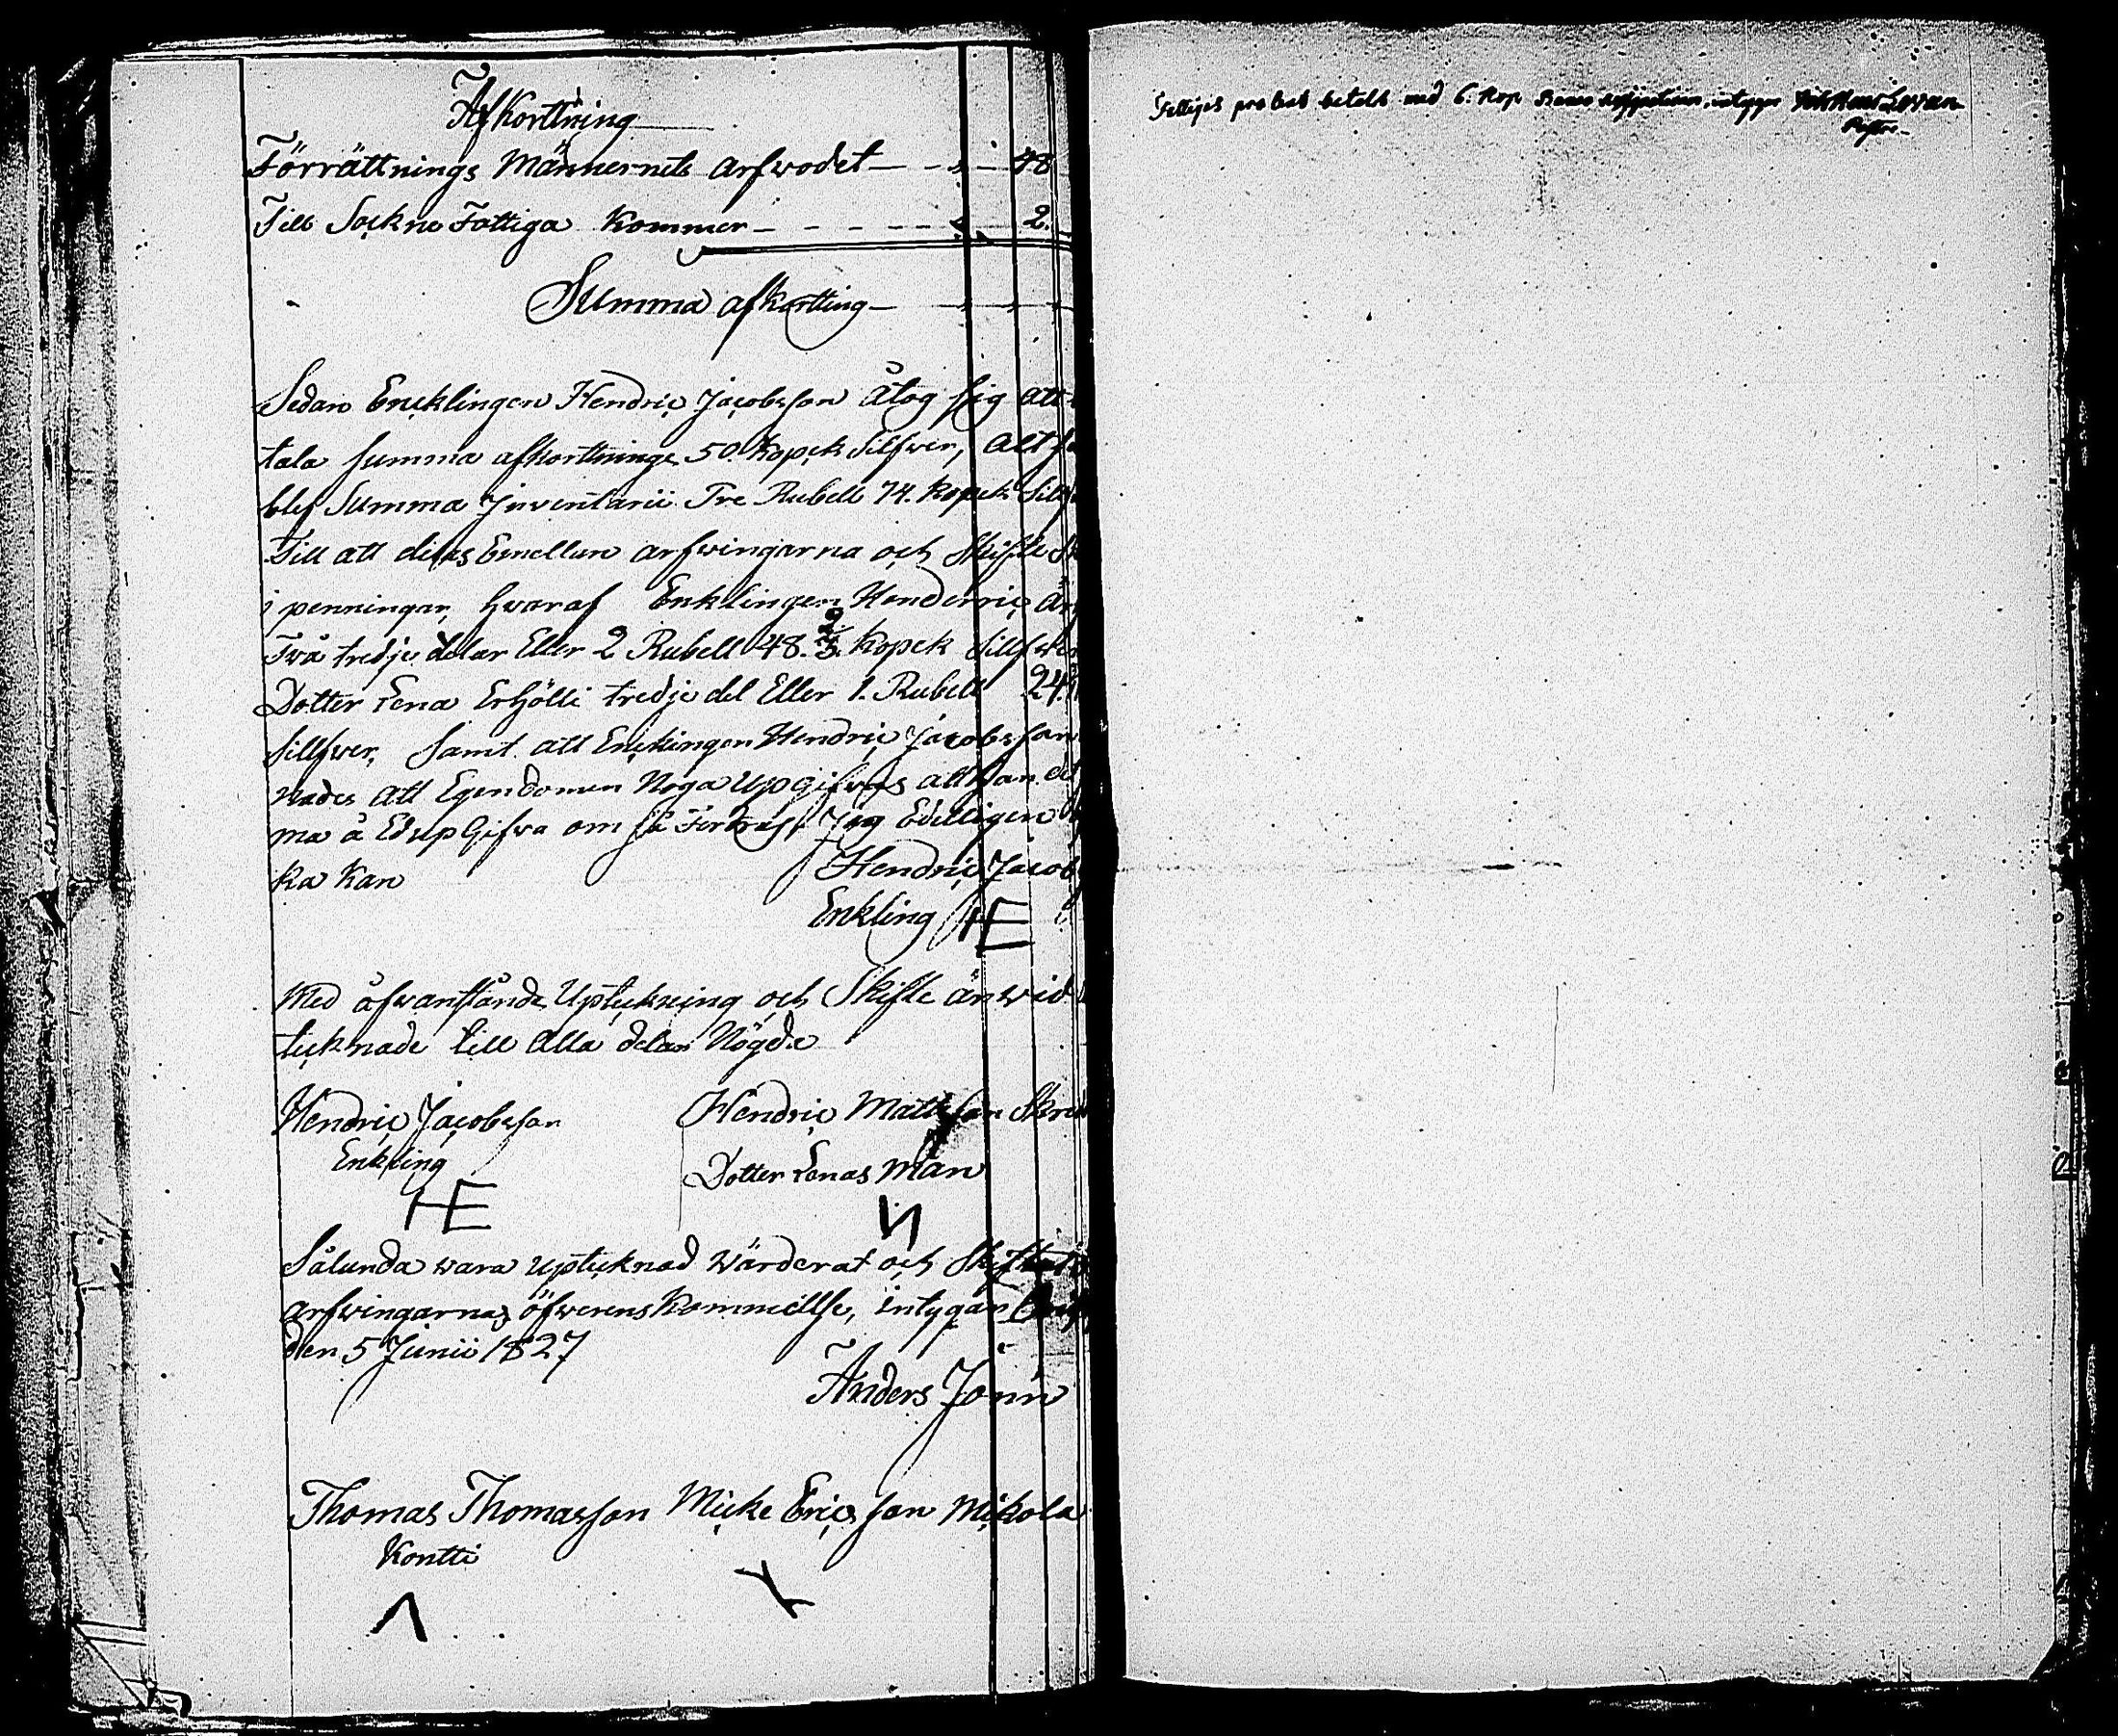 Afkorttning
Förrättnings Männernets arfwodet — 48
Till Sockne Fattiga Kommer — 2.
Summa afkortting —
Sedan Encklingen Hendric Jacobsson åtog sig att
tala summa afkorttninge 50. Kopek Silfwer, Alt
blef Summa Inventarii Tre Rubell 74. kopek
Till att delas Emellan arfwingarna och Skifte
i penningar, hwaraf Enklingen Henderric
Två tredje delar Eller 2 Rubell 48. 2/3. Kopek Sillfwer
Dotter Lena Erhölli tredje del Eller 1. Rubell 24.
Sillfwer, Samt att Encklingen Hendric Jacobsson
nades att Egendomen Noga Upgifwas att Han
ma å Ed upGifva om så Fordras, Jag Edelligen
ka Kan
Hendric Jacob
Enkling HE
Med åfwanstånde Upteckning och Skifte
tecknade till Alla delar Nögda
Hendric Jacobsson Hendric Mattsson
Enkling Dotter Lenas Man
HE
Sålunda wara Uptecknad Wärderat och
arfwingarnas öfwerens Kommellse, intygar
den 5 Junii 1827
Anders Jönn
Thomas Thomasson Micke Ericsson Mikola
Kontti
betalt med 6. Kop